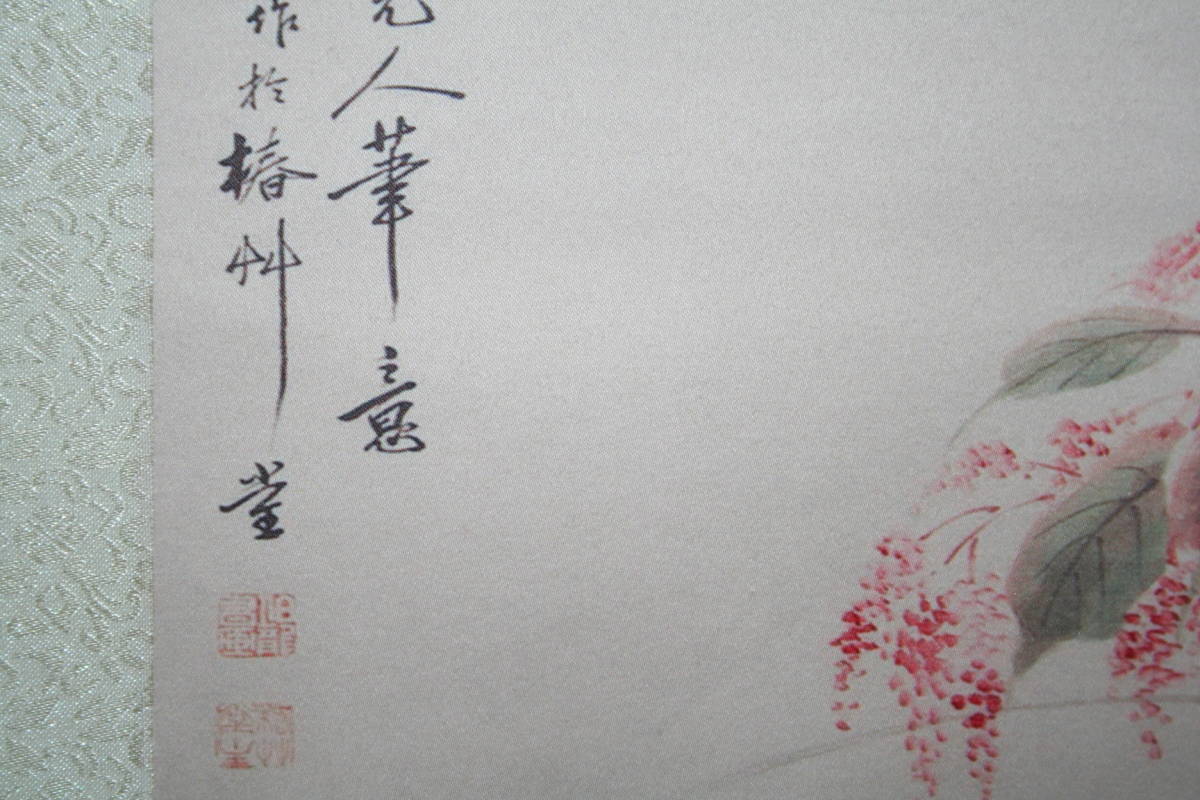 元人筆意
作於椿艸堂